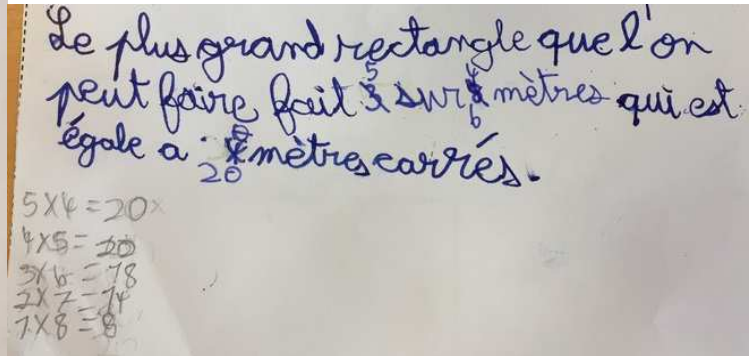 Le plus grand rectangle que l'on
peut faire fait 5 sur 4 mètres qui est
égale a 20 mètres carrés.
5X4=20
4X5=20
3X6=18
2X7=14
1X8=8